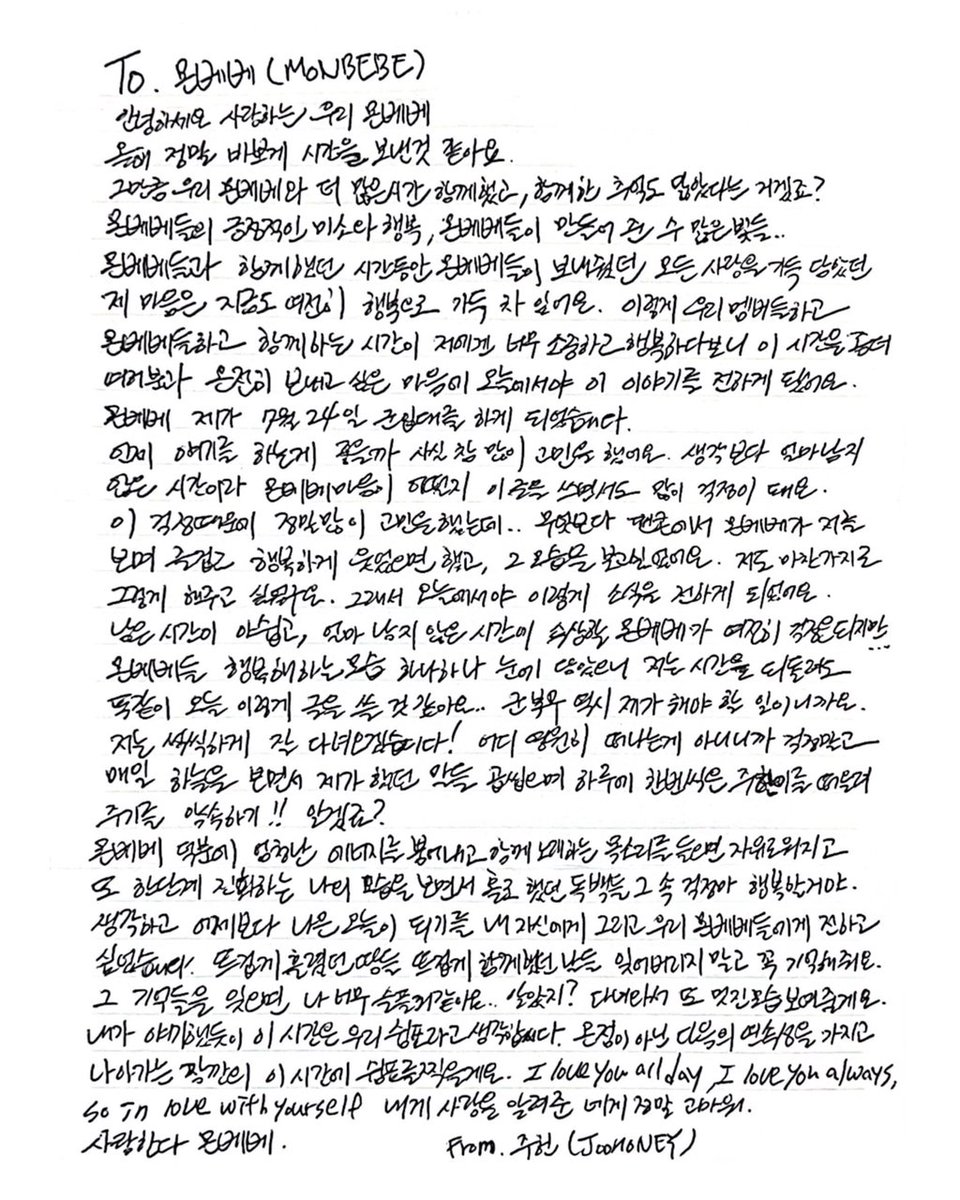 To. 몬베베 (MONBEBE)
안녕하세요 사랑하는 우리 몬베베
올해 정말 바쁘게 시간을 보낸것 같아요.
그만큼 우리 몬베베와 더 많은시간 함께했고, 함께한 추억도 많았다는 거겠죠?
몬베베들의 긍정적인 미소와 행복, 몬베베들이 만들어 준 수 많은 빛들..
몬베베들과 함께했던 시간동안 몬베베들이 보내줬던 모든 사랑을 가득 담았던
제 마음은 지금도 여전히 행복으로 가득 차 있어요. 이렇게 우리 멤버들하고
몬베베들하고 함께하는 시간이 저에겐 너무 소중하고 행복하다보니 이 시간을 좀더
여러분과 온전히 보내고 싶은 마음에 오늘에서야 이 이야기를 전하게 됐어요.
몬베베 제가 7월 24일 군입대를 하게 되었습니다.
언제 얘기를 하는게 좋을까 사실 참 많이 고민을 했어요. 생각보다 얼마남지
않은 시간이라 몬베베마음이 어떤지 이 글을 쓰면서도 많이 걱정이 돼요.
이 걱정때문에 정말많이 고민을했는데.. 무엇보다 팬콘에서 몬베베가 저를
보며 즐겁고 행복하게 웃었으면 했고, 그 모습을 보고싶었어요. 저도 마찬가지로
그렇게 해주고 싶었구요. 그래서 오늘에서야 이렇게 소식을 전하게 되었어요.
남은 시간이 아쉽고, 얼마 남지 않은 시간이 속상할 몬베베가 여전히 걱정은되지만...
몬베베들 행복해하는모습 하나하나 눈에 담았으니 저는 시간을 되돌려도
똑같이 오늘 이렇게 글을 쓸 것 같아요.. 군복무 역시 제가 해야 할 일이니까요.
저는 씩씩하게 잘 다녀오겠습니다! 어디 영원히 떠나는게 아니니까 걱정말고
매일 하늘을 보면서 제가 했던 말들 곱씹으며 하루에 한번씩은 주헌이를 떠올려
주기를 약속하기!! 알겠죠?
몬베베 덕분에 엄청난 에너지를 뿜어내고 함께 노래하는 목소리를 들으면 자유로워지고
또 한단계 진화하는 나의 모습을 보면서 홀로 했던 독백들 그 속 걱정마 행복할거야.
생각하고 어제보다 나은 오늘이 되기를 내 자신에게 그리고 우리 몬베베들에게 전하고
싶었습니다. 뜨겁게 흘렸던 땀들 뜨겁게 함께했던 날들 잊어버리지 말고 꼭 기억해줘요.
그 기억들을 잊으면 나 너무 슬플거같아요.. 알았지? 다녀와서 또 멋진모습 보여줄게요.
내가 얘기했듯이 이 시간은 우리 쉼표라고 생각합니다. 온점이 아닌 다음의 연속성을 가지고
나아가는 잠깐의 이 시간에 쉼표를찍을게요. I love you all day, I love you always,
so In love with yourself 내게 사랑을 알려준 네게 정말 고마워.
사랑한다 몬베베. From. 주헌 (JOOHONEY)